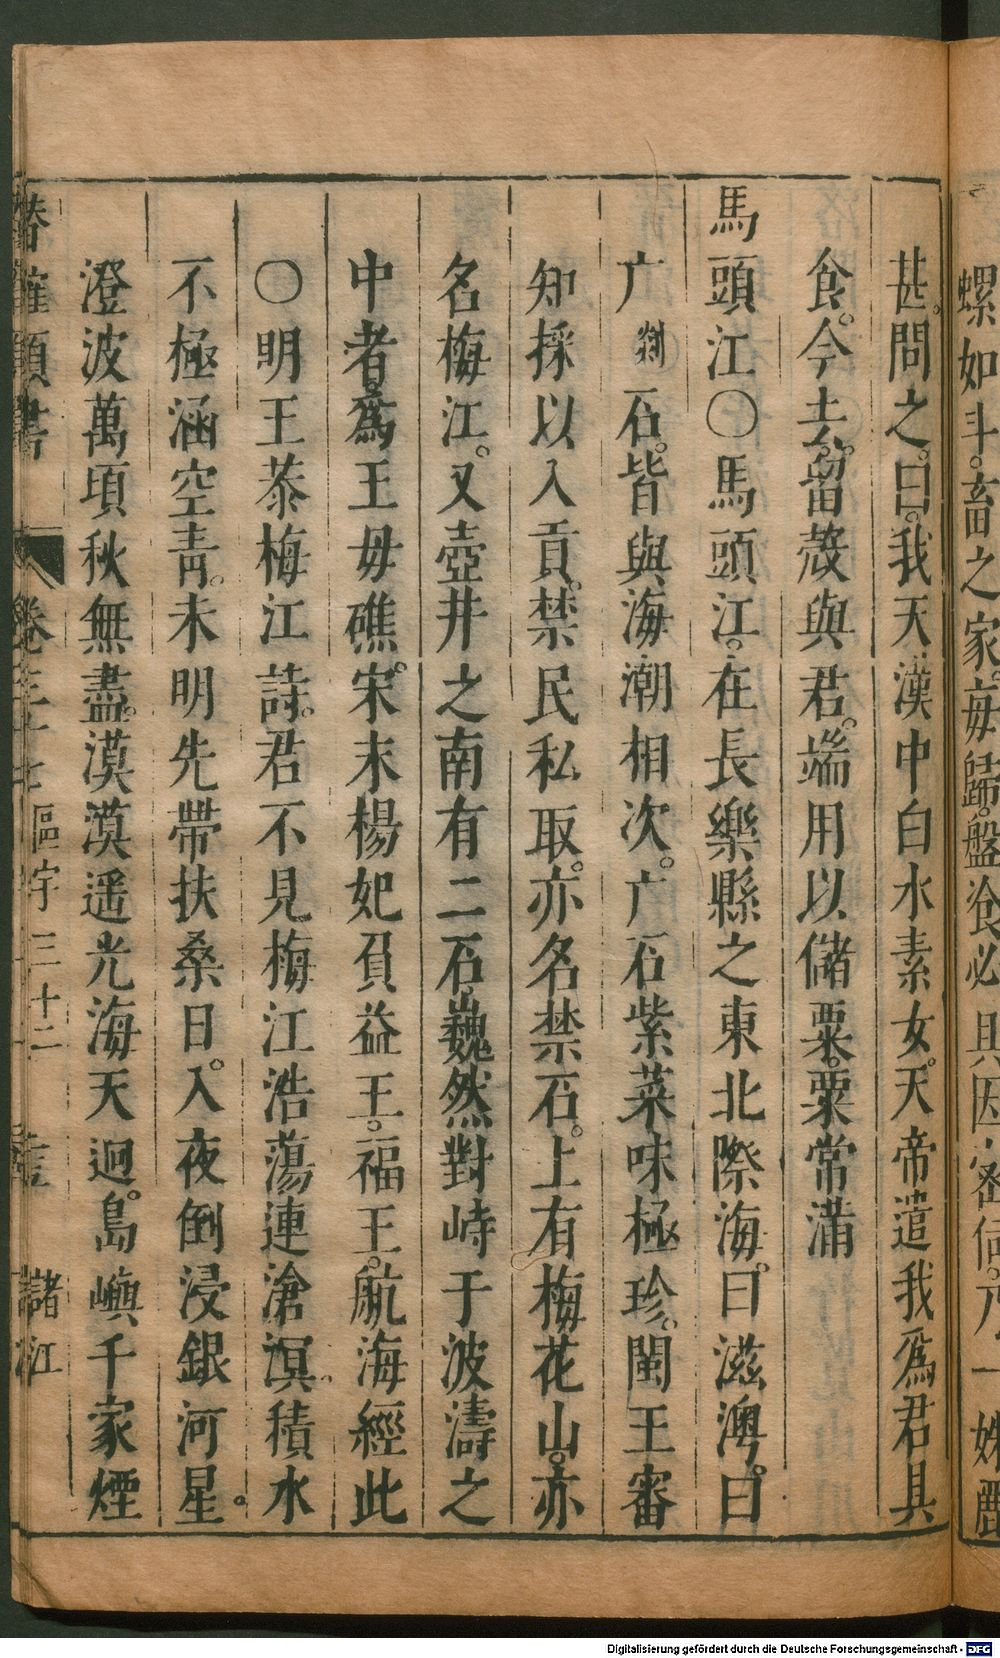 螺如斗。畜之家。每歸。盤飡必具。因密伺。乃一姝麗
甚。問之。曰。我天漢中白水素女。天帝遣我爲君具
食。今去。留殼與君。端用以儲粟。粟常滿
馬頭江〇馬頭江。在長樂縣之東北際海。曰滋澳。曰
广石。皆與海潮相次。广石紫菜味極珍。閩王審
知採以入貢。禁民私取。亦名禁石。上有梅花山。亦
名梅江。又壺井之南有二石。巍然對峙于波濤之
中者。爲王母礁。宋末楊妃負益王。福王。航海經此
〇明王恭梅江詩。君不見梅江浩蕩連滄溟。積水
不極涵空青。未明先帶扶桑日。入夜倒浸銀河星。
澄波萬頃秋無盡。漠漠遥光海天迥。島嶼千家煙
卷三十七 區宇三十二 諸江
Digitalisierung gefördert durch die Deutsche Forschungsgemeinschaft - DFG